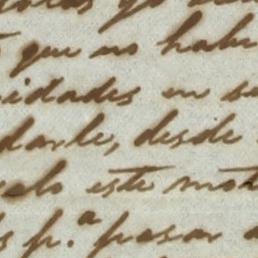 que no habi
idades en su
darle, desde
elo este mot
s p.ª pasar a